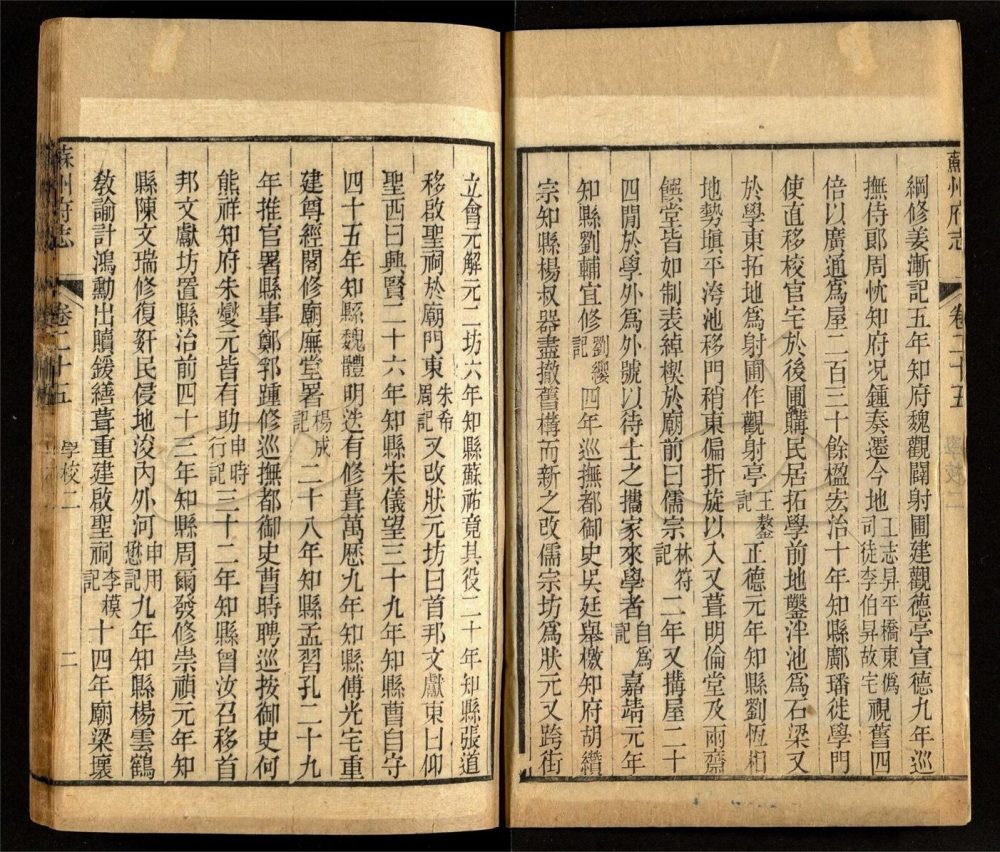 蘇州府志 卷二十五
綱修姜漸記五年知府魏觀闢射圃建觀德亭宣德九年巡
撫侍郎周忱知府况鍾奏遷今地王志昇平橋東僞司徒李伯昇故宅視舊四
倍以廣通爲屋二百三十餘楹宏治十年知縣鄺璠徙學門
使直移校官宅於後圃購民居拓學前地鑿泮池爲石梁又
於學東拓地爲射圃作觀射亭王鏊記正德元年知縣劉恆相
地勢塡平洿池移門稍東偏折旋以入又葺明倫堂及兩齋
饌堂皆如制表綽楔於廟前曰儒宗林符記二年又搆屋二十
四閒於學外爲外號以待士之攜家來學者自爲記嘉靖元年
知縣劉輔宜修劉纓記四年巡撫都御史吳廷舉檄知府胡纘
宗知縣楊叔器盡撤舊構而新之改儒宗坊爲狀元又跨街
立會元解元二坊六年知縣蘇祐竟其役二十年知縣張道
移啟聖祠於廟門東朱希周記又改狀元坊曰首邦文獻東曰仰
聖西曰興賢二十六年知縣宋儀望三十九年知縣曹自守
四十五年知縣魏體明迭有修葺萬歷九年知縣傅光宅重
建尊經閣修廟廡堂署楊成記二十八年知縣孟習孔二十九
年推官署縣事鄭郛踵修巡撫都御史曹時聘巡按御史何
熊祥知府朱燮元皆有助申時行記三十二年知縣曾汝召移首
邦文獻坊置縣治前四十三年知縣周爾發修崇禎元年知
縣陳文瑞修復姧民侵地浚內外河申用懋記九年知縣楊雲鶴
敎諭計鴻勳出贖鍰繕葺重建啟聖祠李模記十四年廟梁壞
蘇州府志 卷二十五 學校二 二